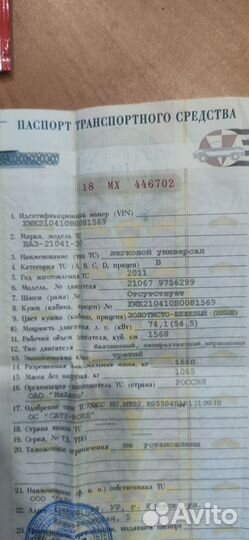 ПАСПОРТ ТРАНСПОРТНОГО СРЕДСТВА
18 МХ 446702
1. Идентификационный номер (VIN) XWK210410B0081569
2. Марка, модель ТС ВАЗ-21041-30
3. Наименование (тип ТС) легковой универсал
4. Категория ТС (А, В, С, D, прицеп) В
5. Год изготовления ТС 2011
6. Модель, № двигателя 21067 9756299
7. Шасси (рама) № Отсутствует
8. Кузов (кабина, прицеп) № XWK210410B0081569
9. Цвет кузова (кабины, прицепа) ЗОЛОТИСТО-БЕЖЕВЫЙ
10. Мощность двигателя, л. с. (кВт) 74,1 (54,5)
11. Рабочий объем двигателя, куб. см 1568
12. Тип двигателя бензиновый, четырехтактный
13. Экологический класс третий
14. Разрешенная максимальная масса, кг 1510
15. Масса без нагрузки, кг 1065
16. Организация-изготовитель ТС (страна) РОССИЯ
ОАО "ИжАвто"
17. Одобрение типа ТС № 21.09.10
ОС "САТР-ФОНД"
18. Страна вывоза ТС
19. Серия, № ТД, ТПО
20. Таможенные ограничения не установлены
21. Наименование (ф. и. о.) собственника ТС
ООО
22. Адрес УР, г.
5
23. Наименование организации, выдавшей паспорт
Avito